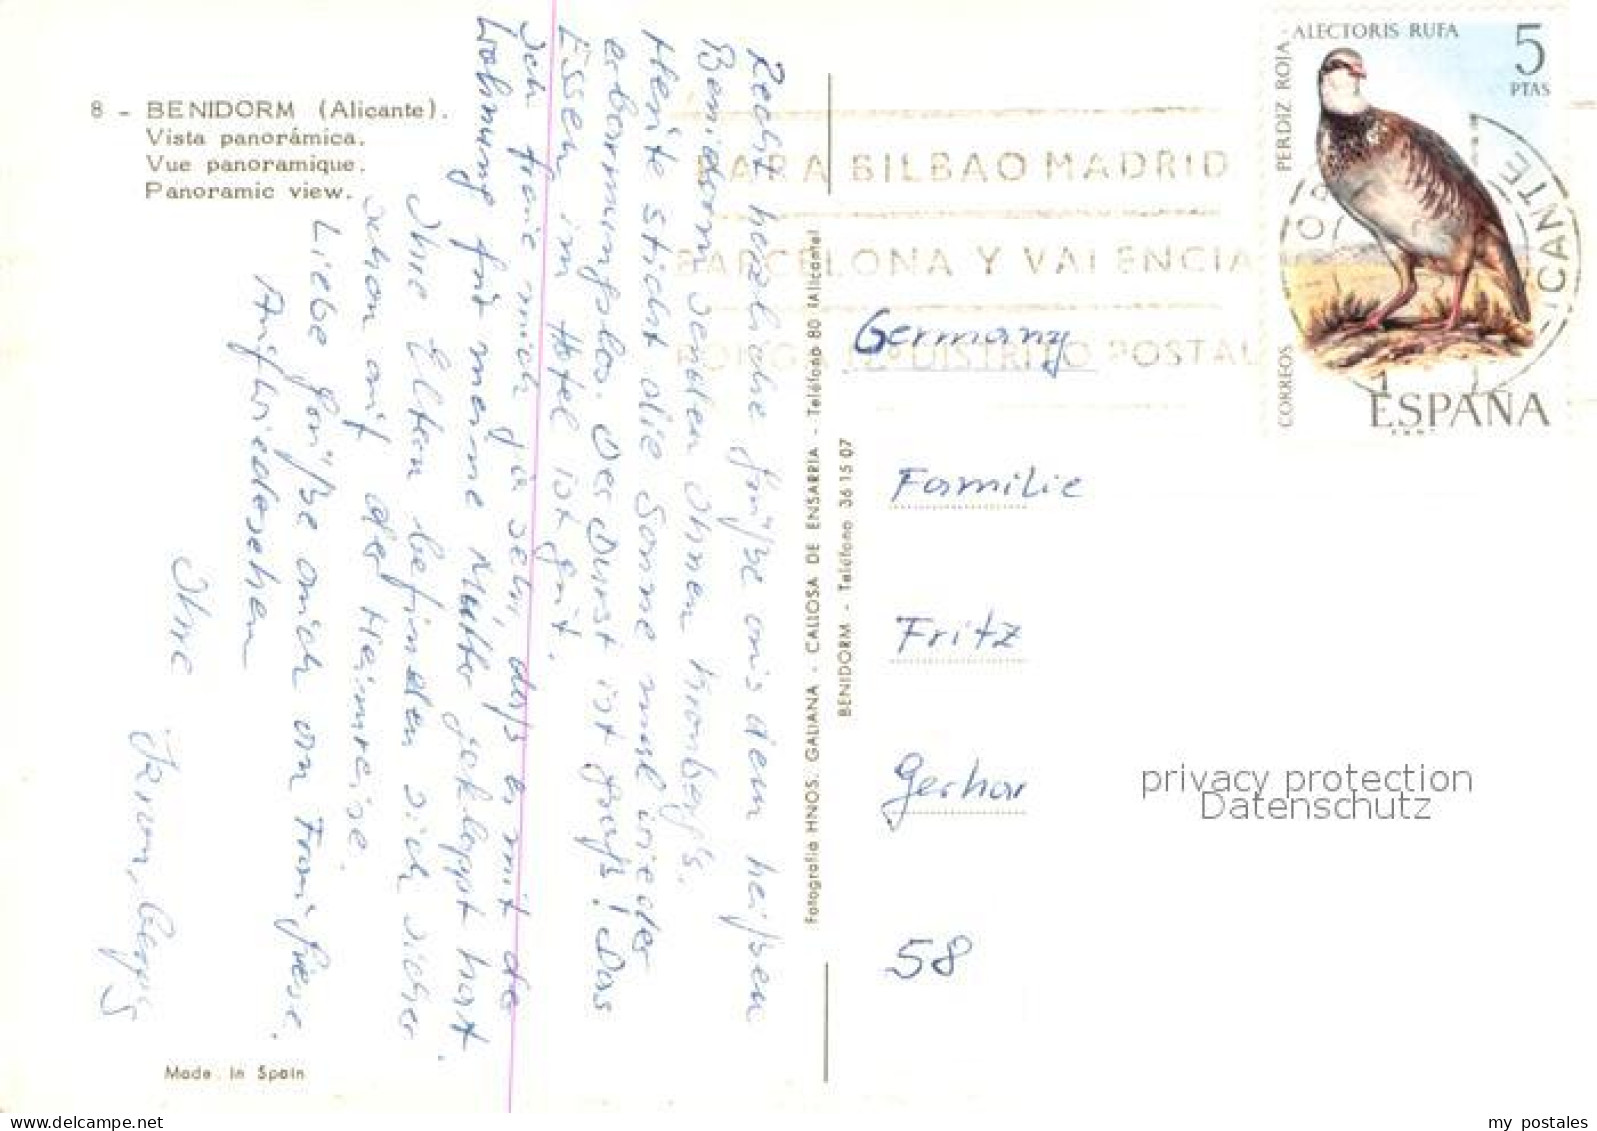 8 - BENIDORM (Alicante).
Vista panorámica.
Vue panoramique.
Panoramic view.
Recht herzliche Grüße aus dem heißen
Benidorm senden Ihnen
Heute sticht die Sonne mal wieder
erbarmungslos. Der Durst ist groß! Das
Essen im Hotel ist gut.
Ich freue mich ja sehr, daß es mit der
Wohnung für meine Mutter geklappt hat.
Ihre Eltern befinden sich sicher
schon auf der Heimreise.
Liebe Grüße auch an
Auf Wiedersehen
Ihre
Made in Spain
Fotografia HNOS. GALIANA - CALLOSA DE ENSARRIA - Teléfono 80 (Alicante)
BENIDORM - Teléfono 36 15 07
PARA BILBAO MADRID
BARCELONA Y VALENCIA
PONGA DISTRITO POSTAL
ALECTORIS RUFA
PERDIZ ROJA
5
PTAS
CORREOS
ESPAÑA
ALICANTE
Germany
Familie
Fritz
Gerhar
58
privacy protection
Datenschutz
my postales